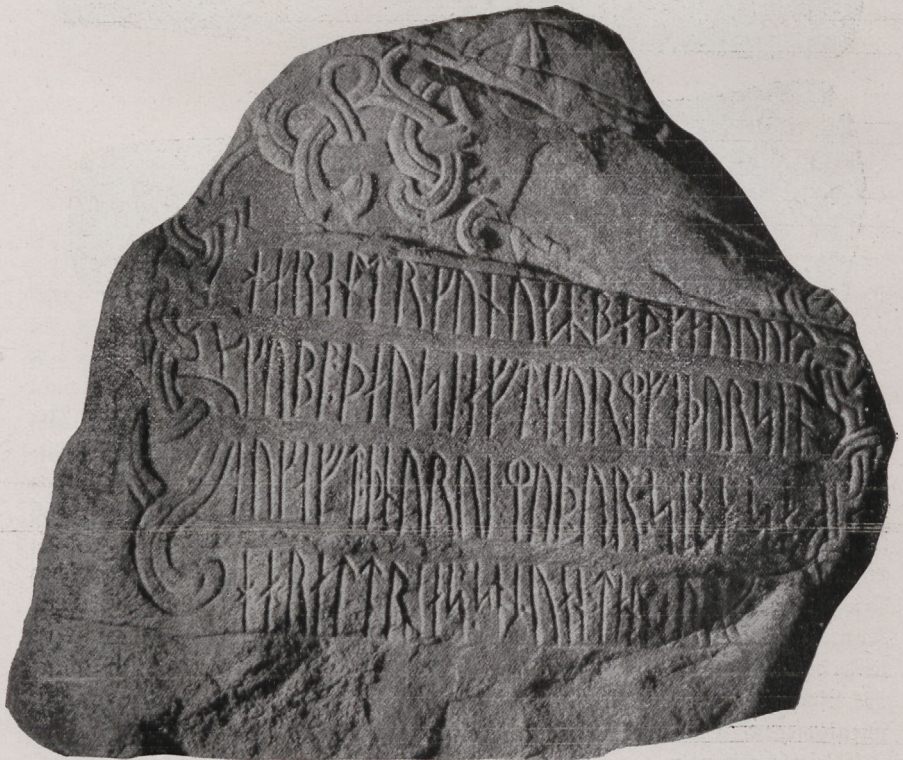 ᚼᛅᚱᛅᛚᛏᚱ ᛬ ᚴᚢᚾᚢᚴᛦ ᛬ ᛒᛅᚦ ᛬ ᚴᛅᚢᚱᚢᛅ
ᚴᚢᛒᛚ ᛬ ᚦᛅᚢᛋᛁ ᛬ ᛅᚠᛏ ᛬ ᚴᚢᚱᛘ ᚠᛅᚦᚢᚱ ᛋᛁᚾ
ᛅᚢᚴ ᛅᚠᛏ ᛬ ᚦᚭᚢᚱᚢᛁ ᛬ ᛘᚢᚦᚢᚱ ᛬ ᛋᛁᚾᛅ ᛬ ᛋᛅ
ᚼᛅᚱᛅᛚᛏᚱ ᛬ ᛁᛅᛋ ᛬ ᛋᚭᛦ ᛬ ᚢᛅᚾ ᛬ ᛏᛅᚾᛘᛅᚢᚱᚴ